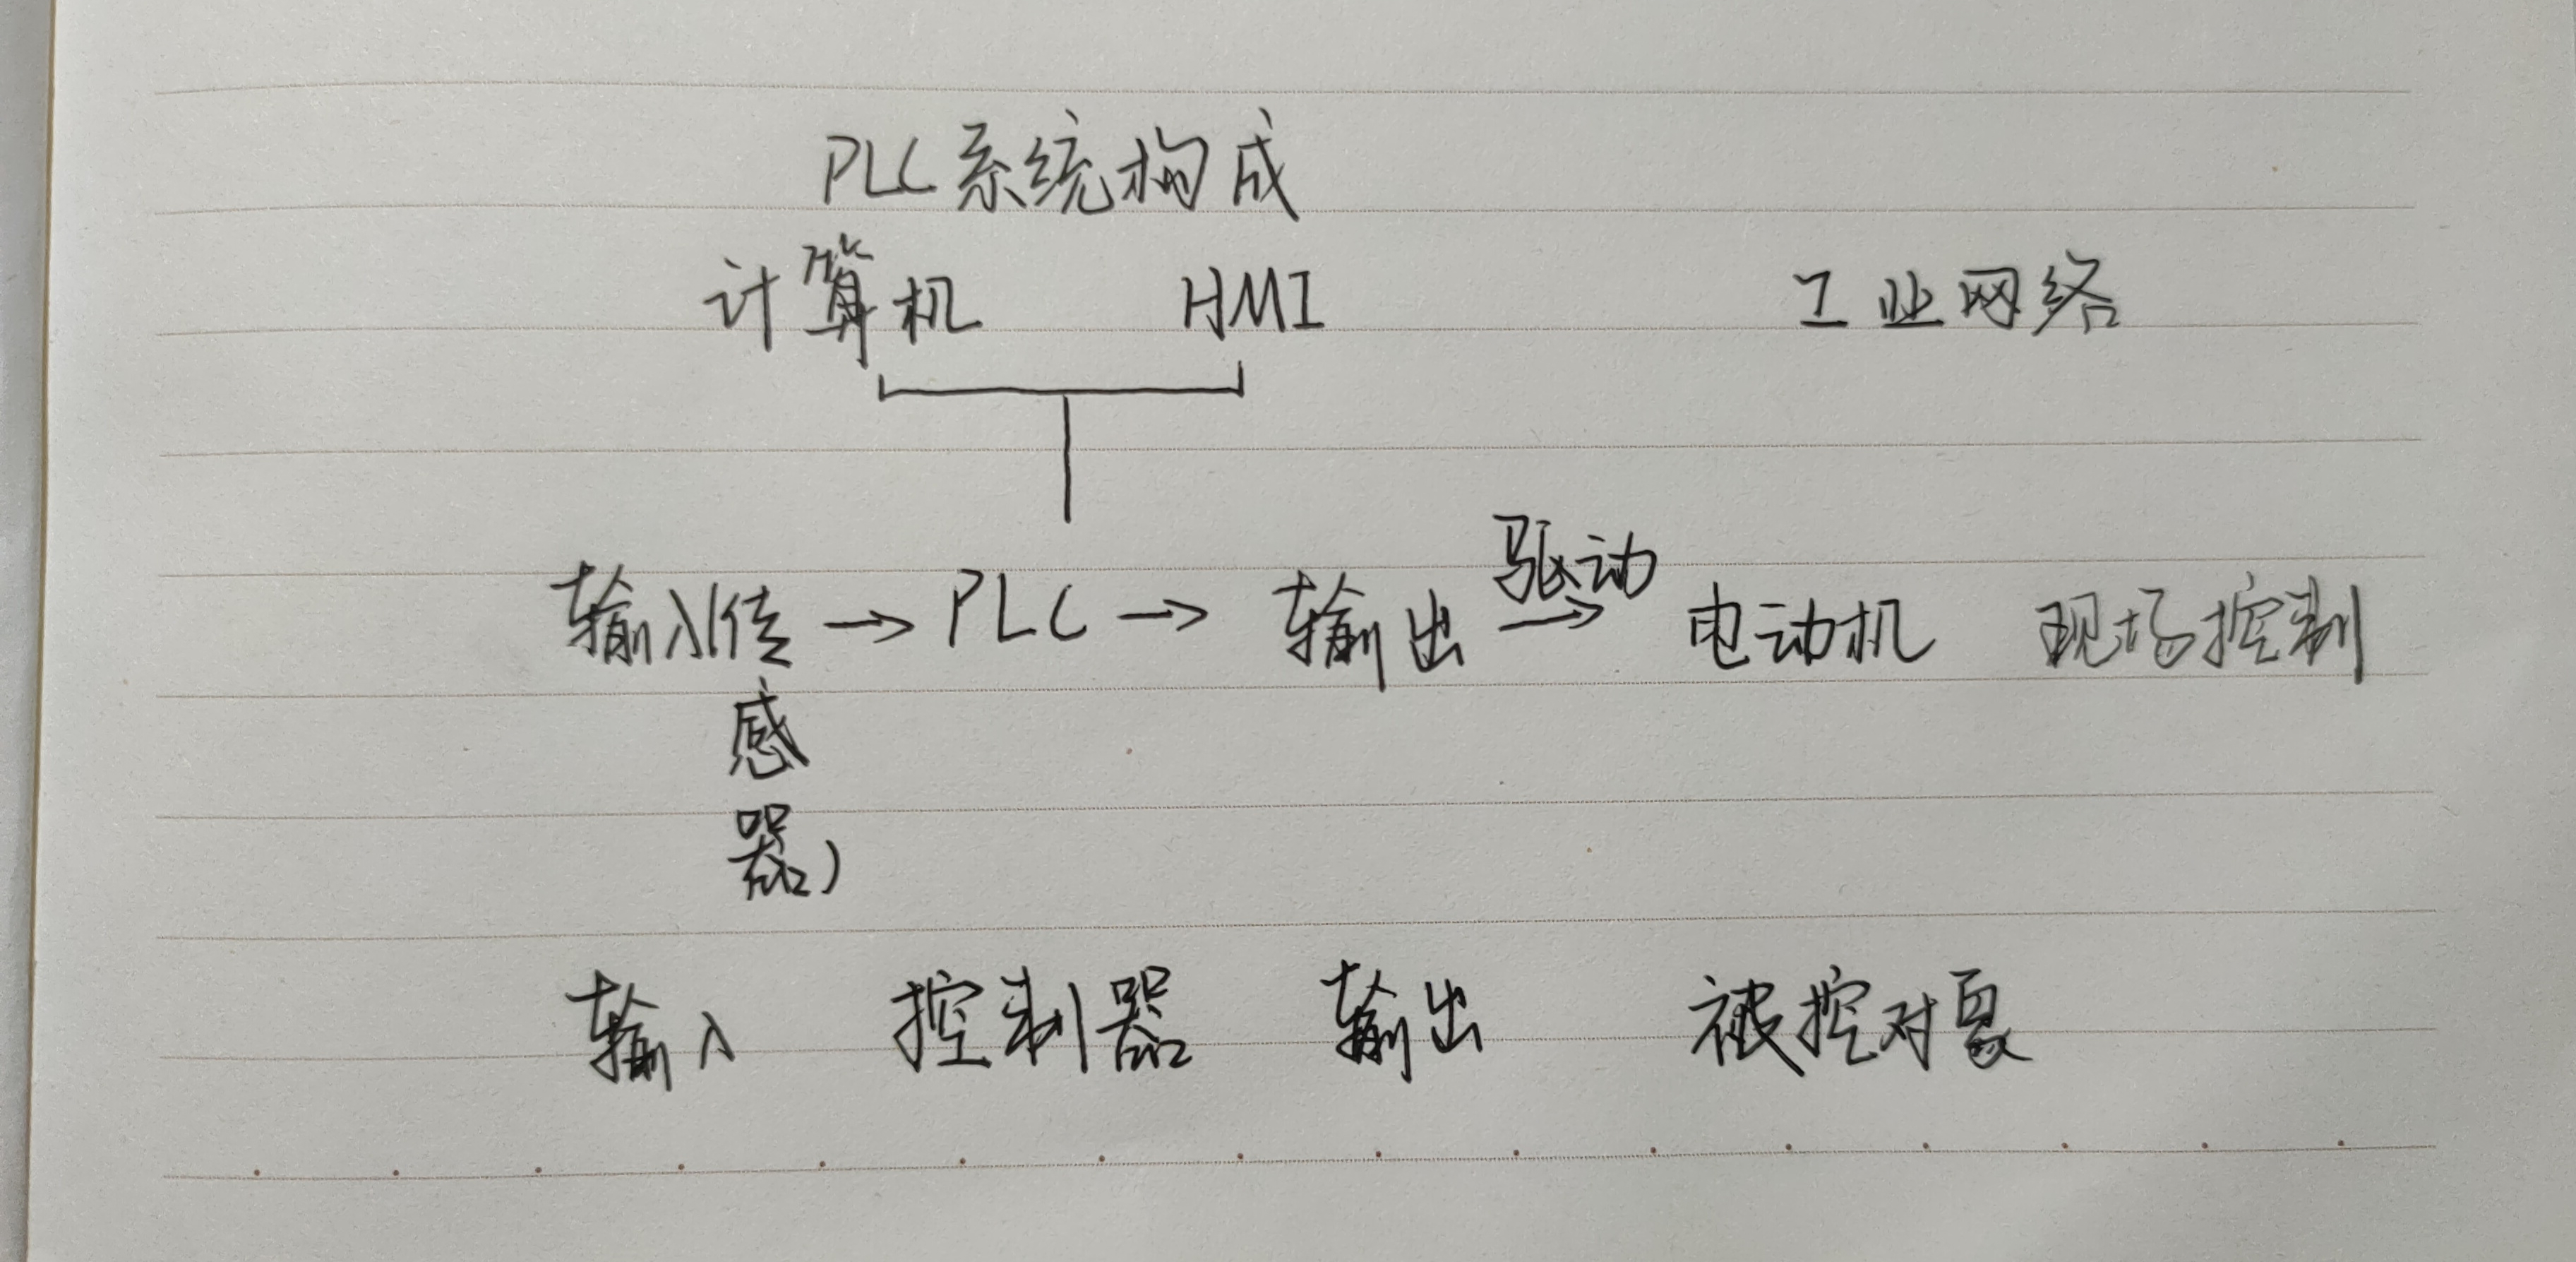 PLC系统构成
计算机 HMI 工业网络
驱动
输入(传 → PLC → 输出 → 电动机 现场控制
感
器)
输入 控制器 输出 被控对象